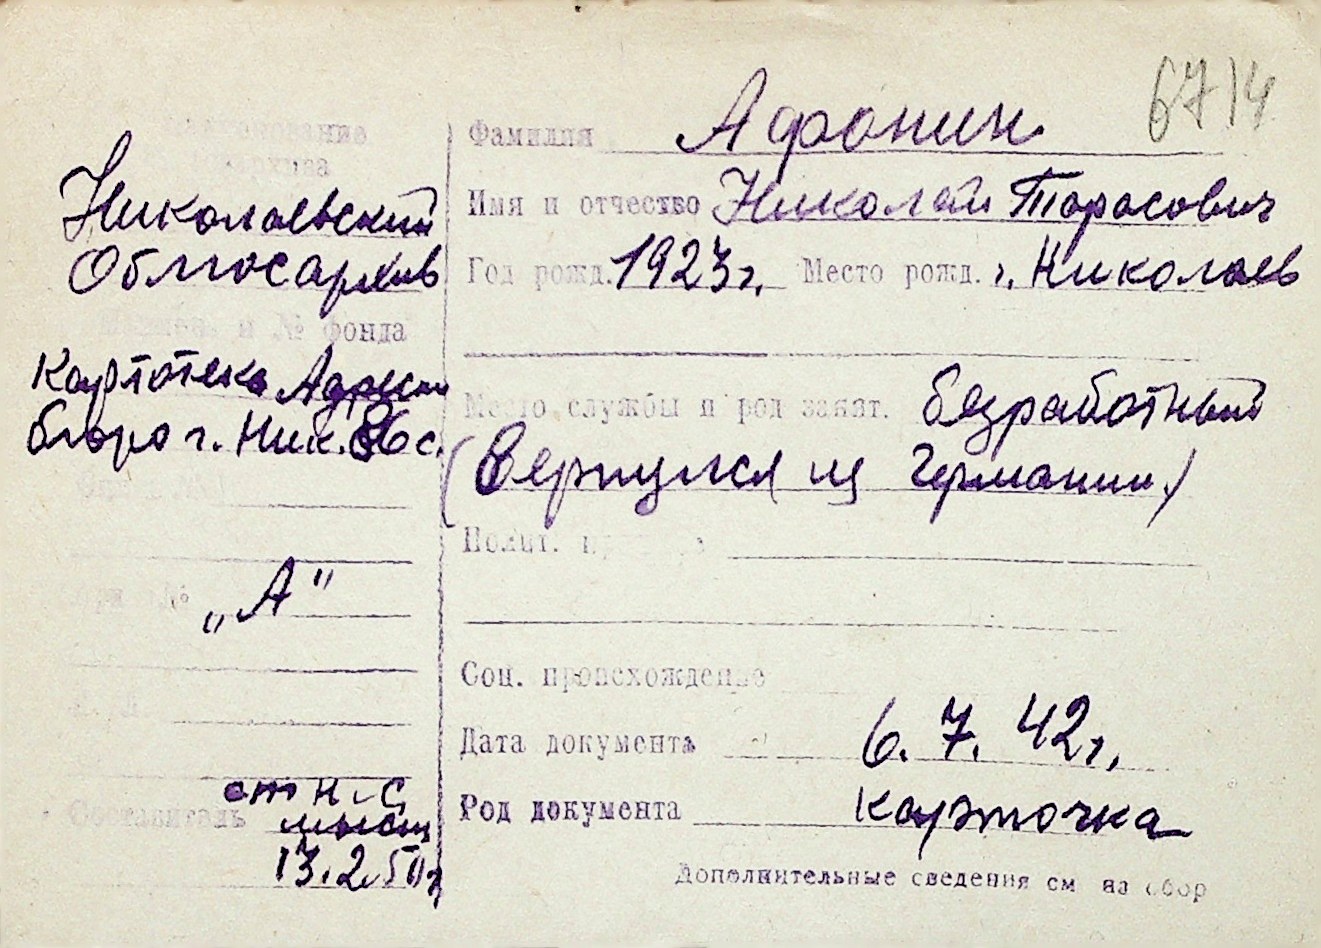 6714
Наименование
архива
Николаевский
Облгосархив
и № фонда
Картотека Адресн
бюро г. Ник.
„А"
Составитель
ст Н.С
13.2.50г
Фамилия Афонин
Имя и отчество Николай Тарасович
Год рожд. 1923г. Место рожд. г. Николаев
Место службы и род занят. безработный
(Вернулся из Германии)
Полит.
Соц. происхождение
Дата документа 6. 7. 42г.
Род документа карточка
Дополнительные сведения см на обор